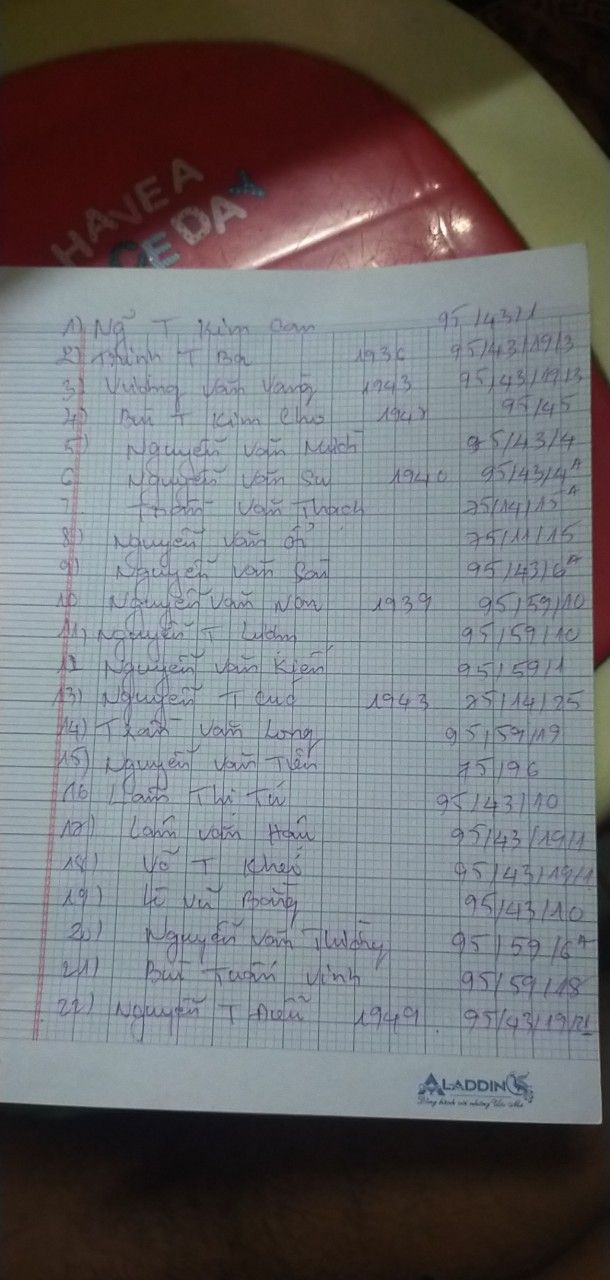 HAVE A
NICE DAY
1) Ng T Kim Oan 95/43/1
2) Trịnh T Ba 1936 95/43/19/3
3) Vương Văn Vang 1943 95/43/19/3
4) Bùi T Kim Cho 194 95/45
5) Nguyễn Văn 95/43/4
6 Nguyễn Văn Sự 1940 95/43/4A
7. Trần Văn Thạch 75/14/15A
8) Nguyễn Văn Ổi 75/11/15
9) Nguyễn Văn 95/43/6A
10 Nguyễn Văn Non 1939 95/59/10
11, Nguyễn T Lượm 95/59/10
12 Nguyễn Văn Kiến 95/59/1
13) Nguyễn T Cúc 1943 75/14/25
14) Trần Văn Long 95/59/19
15) Nguyễn Văn Tiến 75/96
16 Lâm Thị Tú 95/43/10
17) Lâm Văn Hậu 95/43/19/1
18) Võ T 95/43/19/1
19) Lê Vũ Bằng 95/43/10
20) Nguyễn Văn Thường 95/59/6A
21) Bùi Tuấn Vinh 95/59/18
22) Nguyễn T 1949 95/43/19/
ALADDIN
Đồng hành với những Ước Mơ